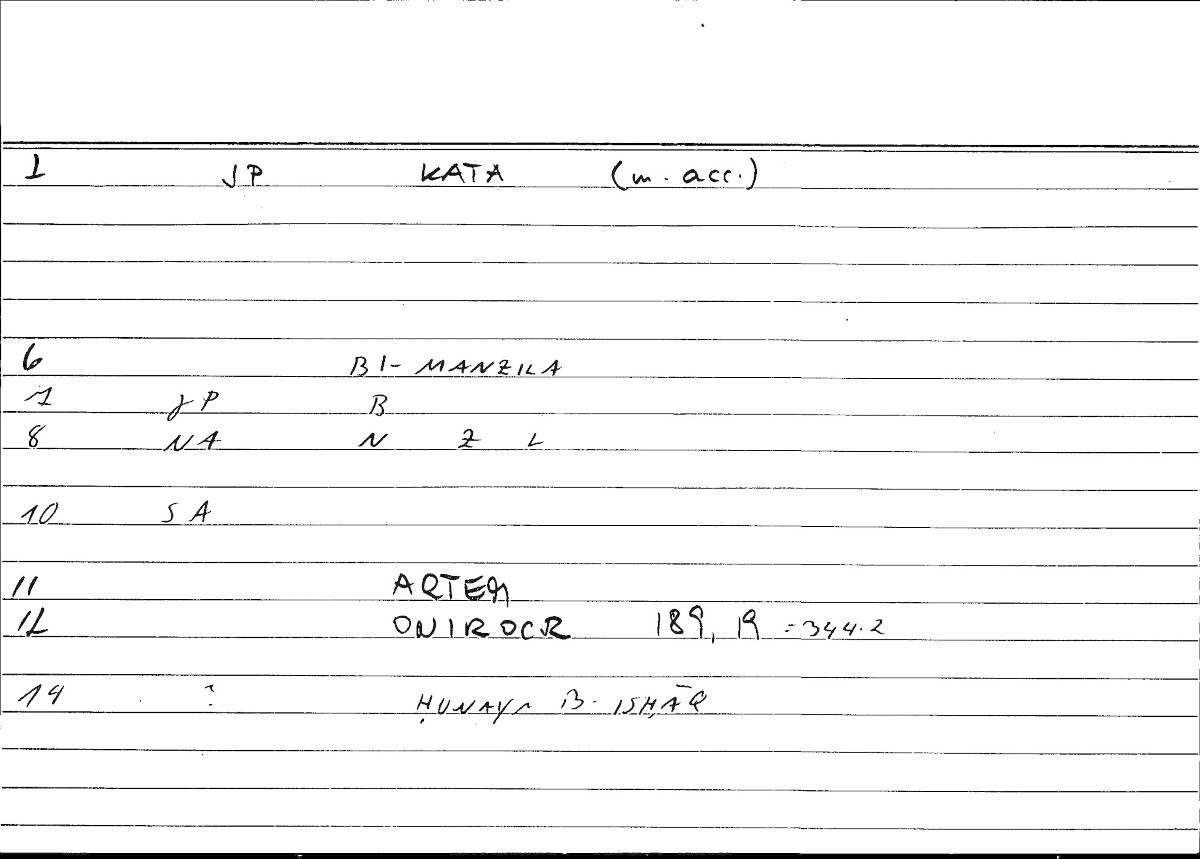 1 JP KATA (m. acc.)
6 BI-MANZILA
1 JP B
8 NA N Z L
10 SA
11 ARTEM
12 ONIROCR 189, 19 = 344.2
14 ? ḤUNAYN B. ISḤĀQ